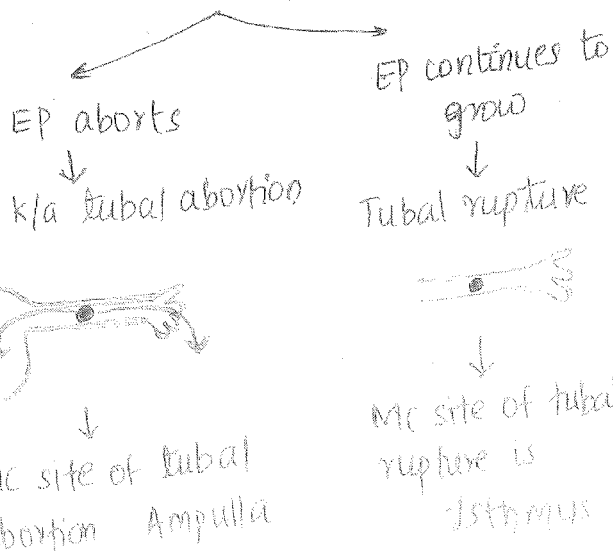 EP aborts
k/a tubal abortion
MC site of tubal
abortion Ampulla
EP continues to
grow
Tubal rupture
MC site of tubal
rupture is
Isthmus